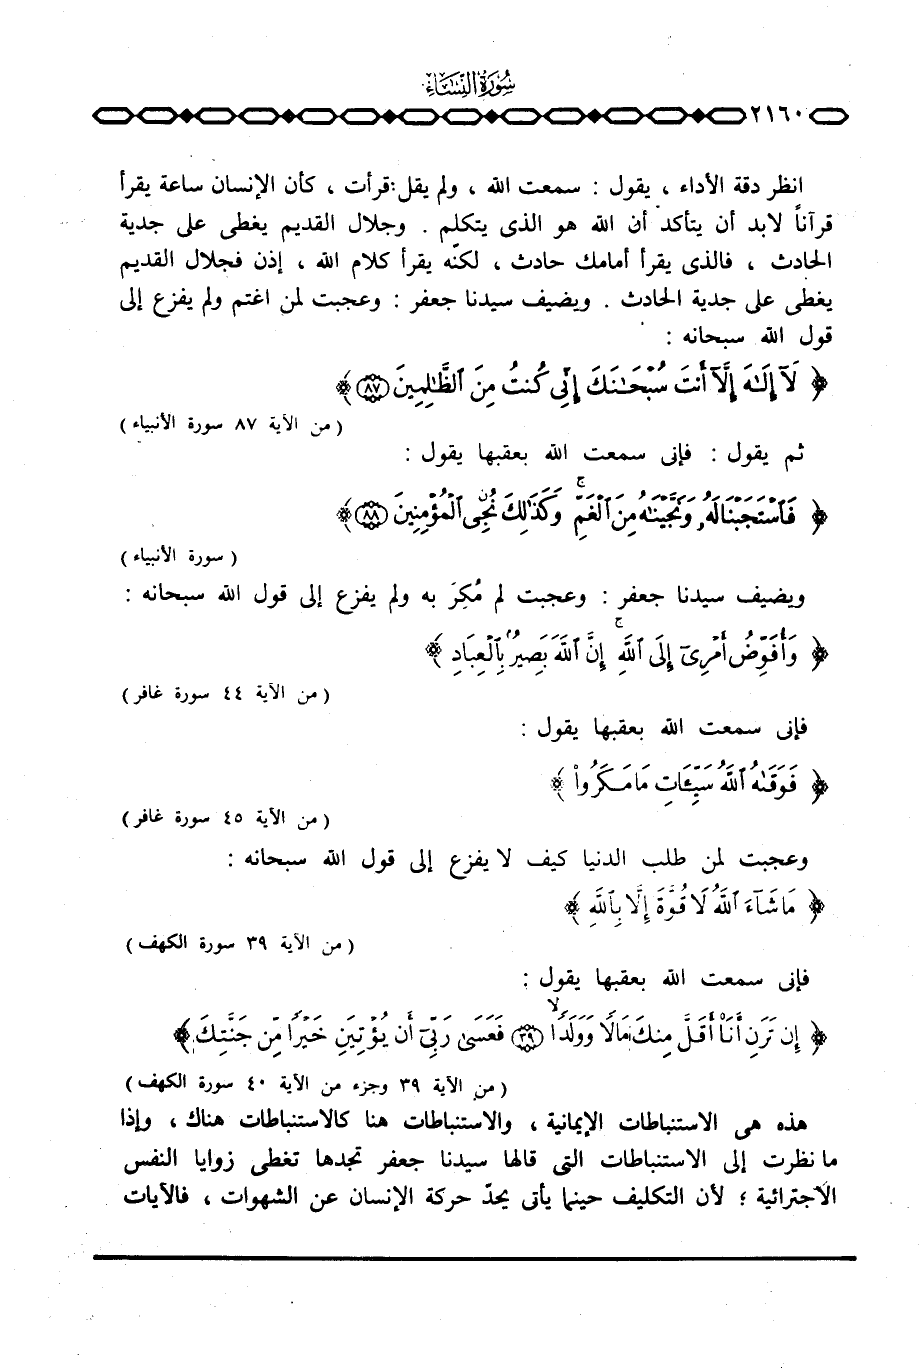 سُورَةُ النِّسَاءِ
٢١٦٠
انظر دقة الأداء ، يقول : سمعت الله ، ولم يقل : قرأت ، كأن الإنسان ساعة يقرأ
قرآناً لابد أن يتأكد أن الله هو الذى يتكلم . وجلال القديم يغطى على جدية
الحادث ، فالذى يقرأ أمامك حادث ، لكنّه يقرأ كلام الله ، إذن فجلال القديم
يغطى على جدية الحادث . ويضيف سيدنا جعفر : وعجبت لمن اغتم ولم يفزع إلى
قول الله سبحانه :
﴿ لَّآ إِلَٰهَ إِلَّآ أَنتَ سُبْحَٰنَكَ إِنِّى كُنتُ مِنَ ٱلظَّٰلِمِينَ ٨٧ ﴾
( من الآية ٨٧ سورة الأنبياء )
ثم يقول : فإنى سمعت الله بعقبها يقول :
﴿ فَٱسْتَجَبْنَا لَهُۥ وَنَجَّيْنَٰهُ مِنَ ٱلْغَمِّ ۚ وَكَذَٰلِكَ نُۨجِى ٱلْمُؤْمِنِينَ ٨٨ ﴾
( سورة الأنبياء )
ويضيف سيدنا جعفر : وعجبت لم مُكِرَ به ولم يفزع إلى قول الله سبحانه :
﴿ وَأُفَوِّضُ أَمْرِىٓ إِلَى ٱللَّهِ ۚ إِنَّ ٱللَّهَ بَصِيرٌۢ بِٱلْعِبَادِ ﴾
( من الآية ٤٤ سورة غافر )
فإنى سمعت الله بعقبها يقول :
﴿ فَوَقَىٰهُ ٱللَّهُ سَيِّـَٔاتِ مَا مَكَرُوا۟ ﴾
( من الآية ٤٥ سورة غافر )
وعجبت لمن طلب الدنيا كيف لا يفزع إلى قول الله سبحانه :
﴿ مَا شَآءَ ٱللَّهُ لَا قُوَّةَ إِلَّا بِٱللَّهِ ﴾
( من الآية ٣٩ سورة الكهف )
فإنى سمعت الله بعقبها يقول :
﴿ إِن تَرَنِ أَنَا۠ أَقَلَّ مِنكَ مَالًا وَوَلَدًا ۙ ٣٩ فَعَسَىٰ رَبِّىٓ أَن يُؤْتِيَنِ خَيْرًا مِّن جَنَّتِكَ ﴾
( من الآية ٣٩ وجزء من الآية ٤٠ سورة الكهف )
هذه هى الاستنباطات الإيمانية ، والاستنباطات هنا كالاستنباطات هناك ، وإذا
ما نظرت إلى الاستنباطات التى قالها سيدنا جعفر تجدها تغطى زوايا النفس
الاجترائية ؛ لأن التكليف حينما يأتى يحدّ حركة الإنسان عن الشهوات ، فالآيات